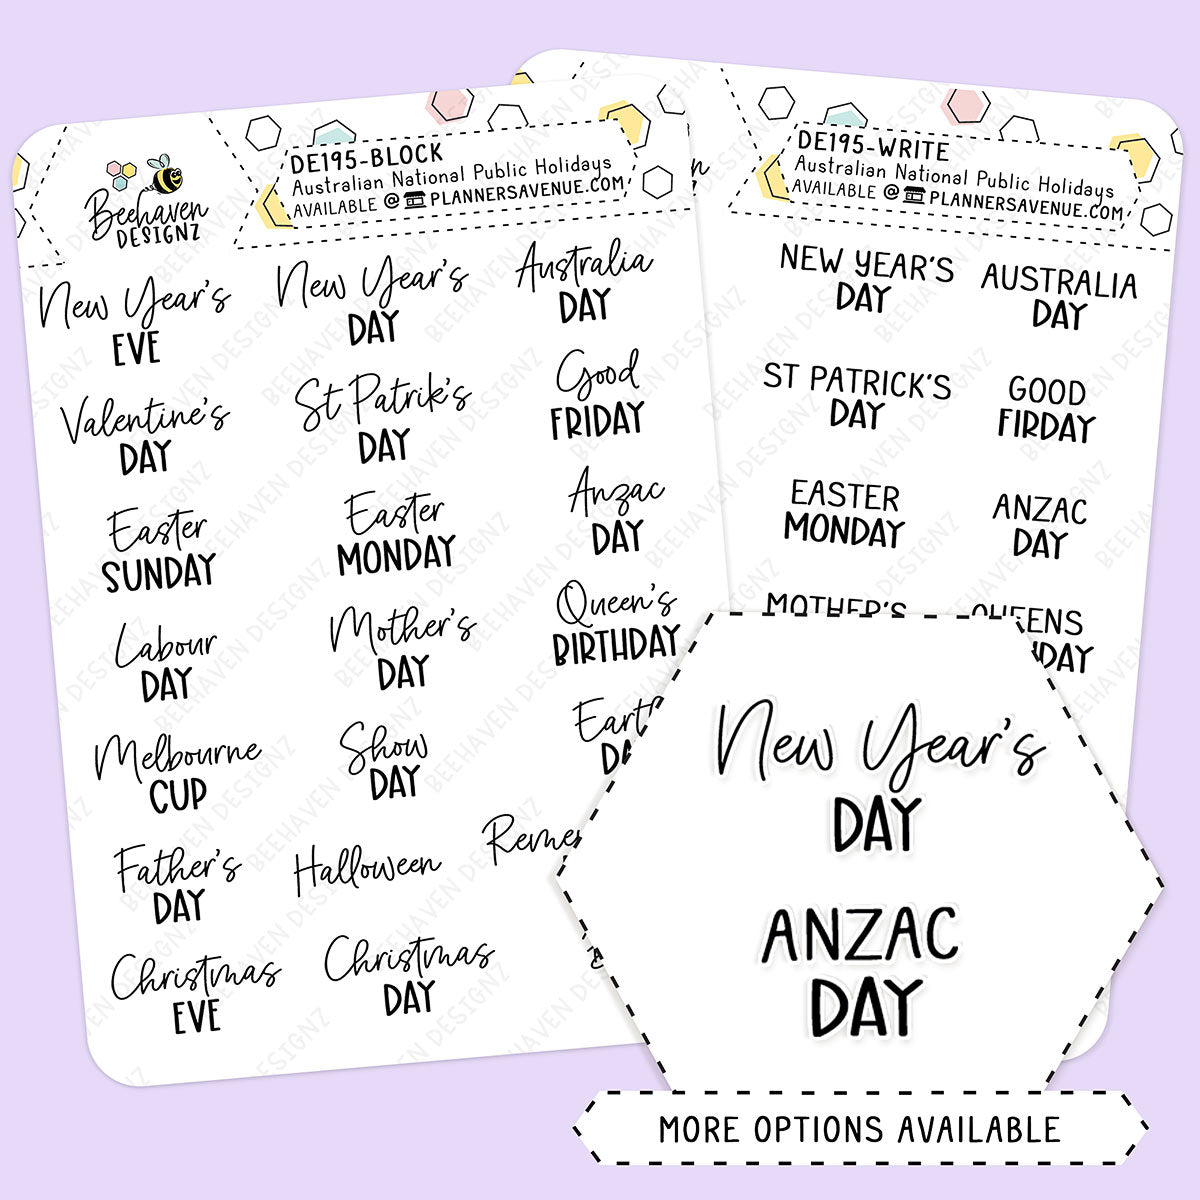 Beehaven
DESIGNZ
DE195-BLOCK
Australian National Public Holidays
AVAILABLE @ PLANNERSAVENUE.COM
New Year's
EVE
New Year's
DAY
Australia
DAY
Valentine's
DAY
St Patrik's
DAY
Good
FRIDAY
Easter
SUNDAY
Easter
MONDAY
Anzac
DAY
Labour
DAY
Mother's
DAY
Queen's
BIRTHDAY
Melbourne
CUP
Show
DAY
Father's
DAY
Halloween
Christmas
EVE
Christmas
DAY
DE195-WRITE
Australian National Public Holidays
AVAILABLE @ PLANNERSAVENUE.COM
NEW YEAR'S
DAY
AUSTRALIA
DAY
ST PATRICK'S
DAY
GOOD
FIRDAY
EASTER
MONDAY
ANZAC
DAY
MOTHER'S
QUEENS
New Year's
DAY
ANZAC
DAY
MORE OPTIONS AVAILABLE
BEEHAVEN DESIGNZ